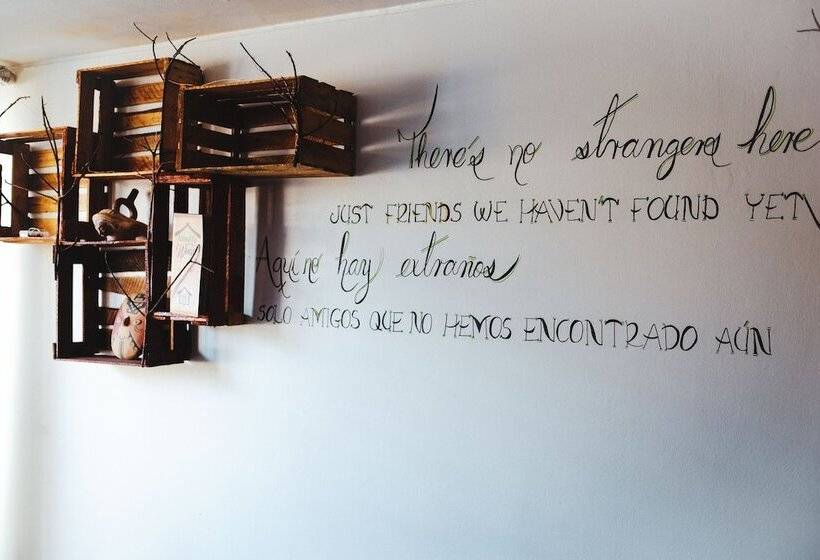 There's no strangers here
JUST FRIENDS WE HAVEN'T FOUND YET
Aquí no hay extraños
SOLO AMIGOS QUE NO HEMOS ENCONTRADO AÚN